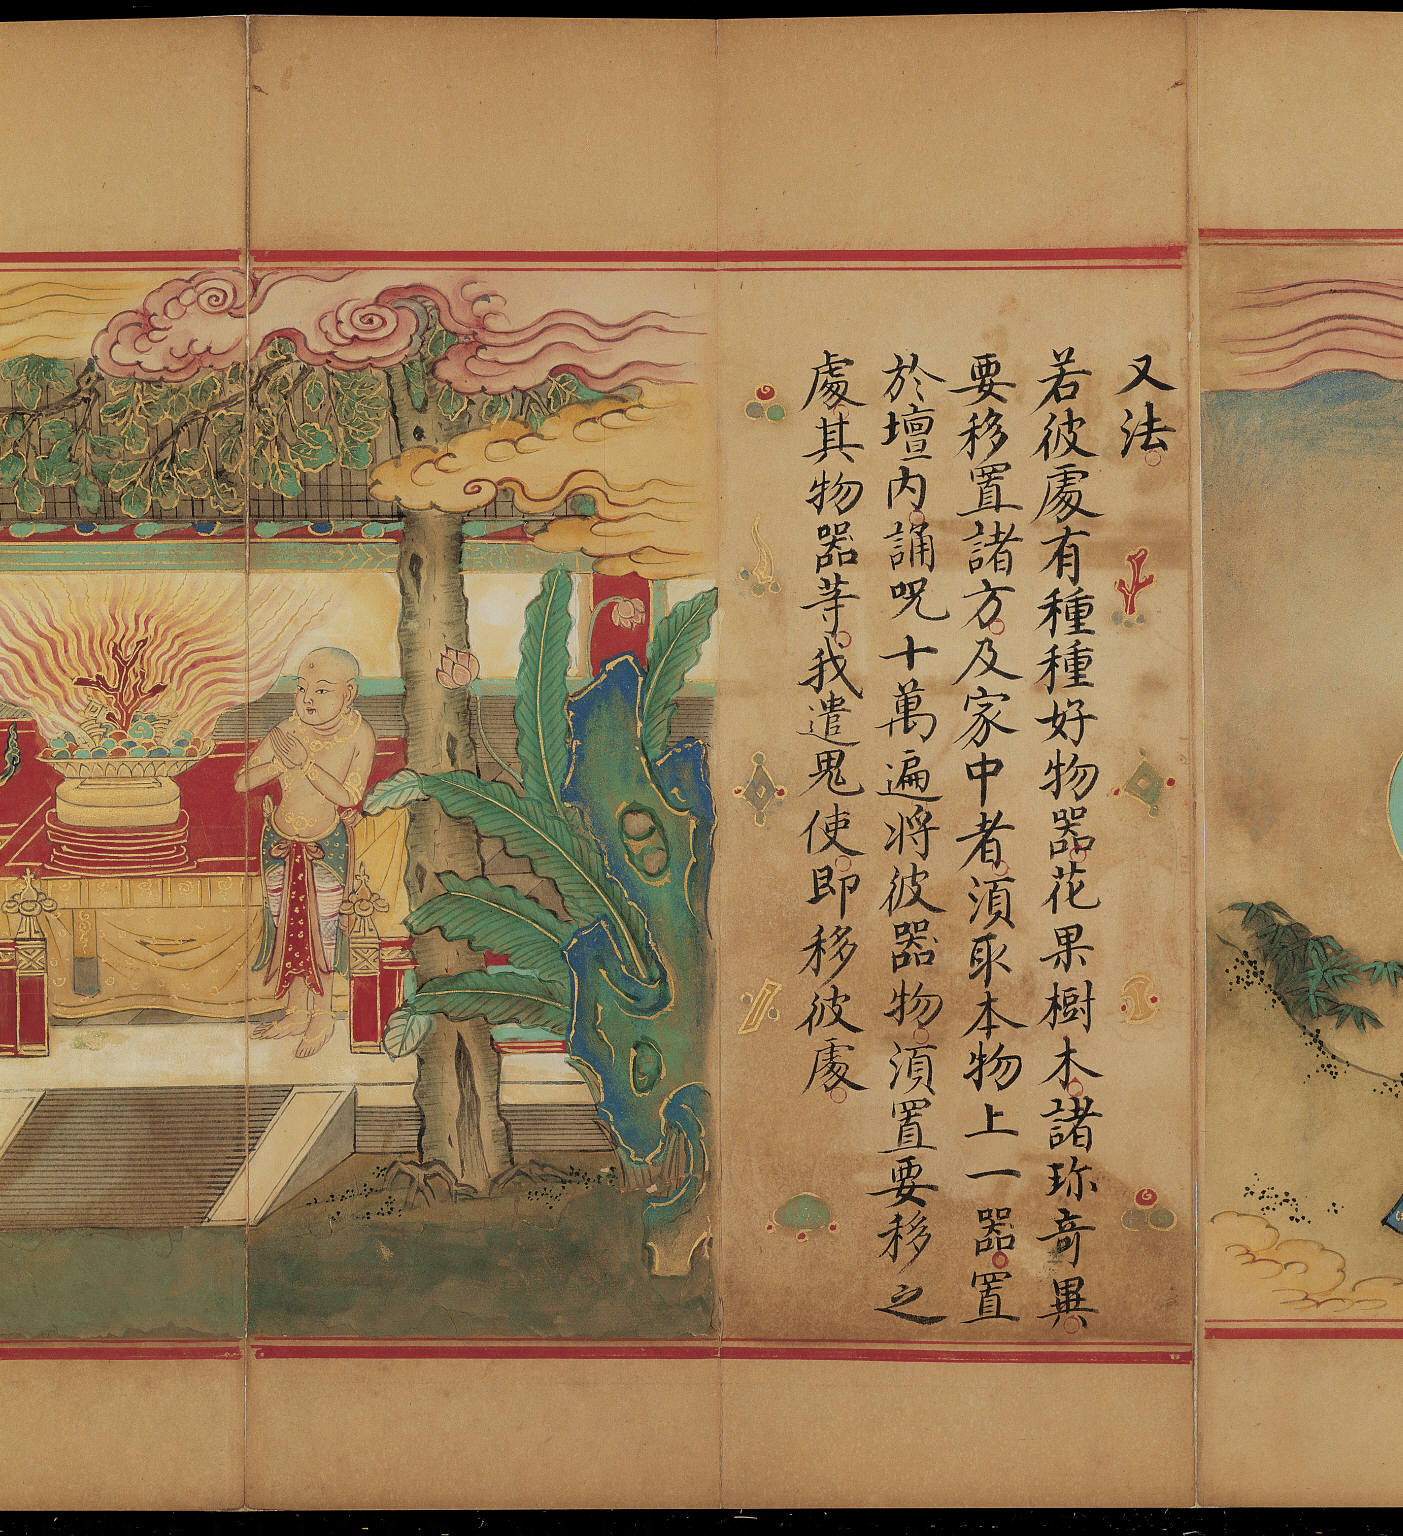 又法
若彼處有種種好物器花果樹木諸珎竒異
要移置諸方及家中者湏取本物上一器置
於壇内誦呪十萬遍将彼器物湏置要移之
處其物器䓁我遣鬼使即移彼處